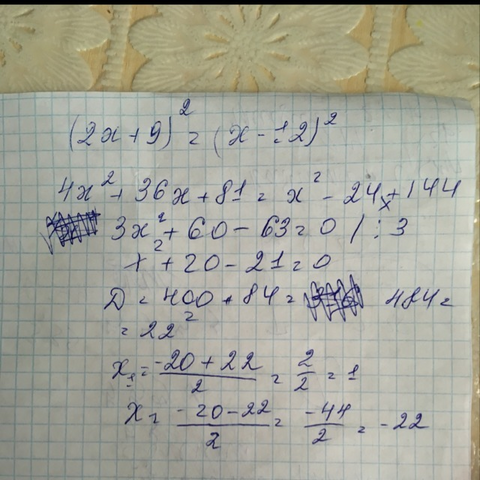 (2x+9)² = (x-12)²
4x² + 36x + 81 = x² - 24x + 144
3x² + 60 - 63 = 0 / : 3
x² + 20 - 21 = 0
D = 400 + 84 = 484 =
= 22²
x₁ = -20+22/2 = 2/2 = 1
x = -20-22/2 = -44/2 = -22